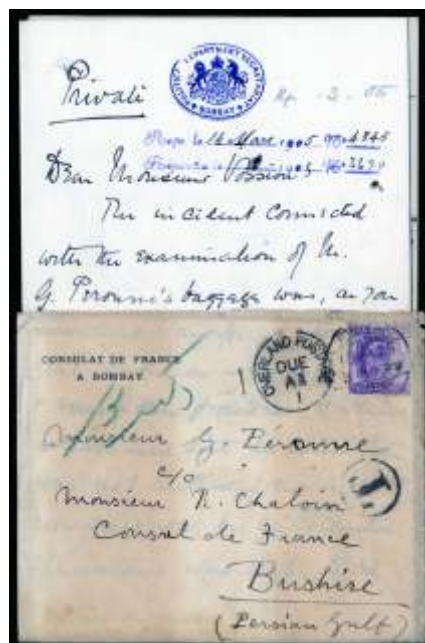 POLITICAL DEPARTMENT SECRETARIAT
BOMBAY
Private
Dear Monsieur Vossion
The incident connected
with the examination of M.
G. Péronne's baggage was, as you
CONSULAT DE FRANCE
A BOMBAY.
OVERLAND POSTAGE
DUE
1
Monsieur G. Péronne
c/o
Monsieur R. Chaloin
Consul de France
Bushire
(Persian Gulf)
T